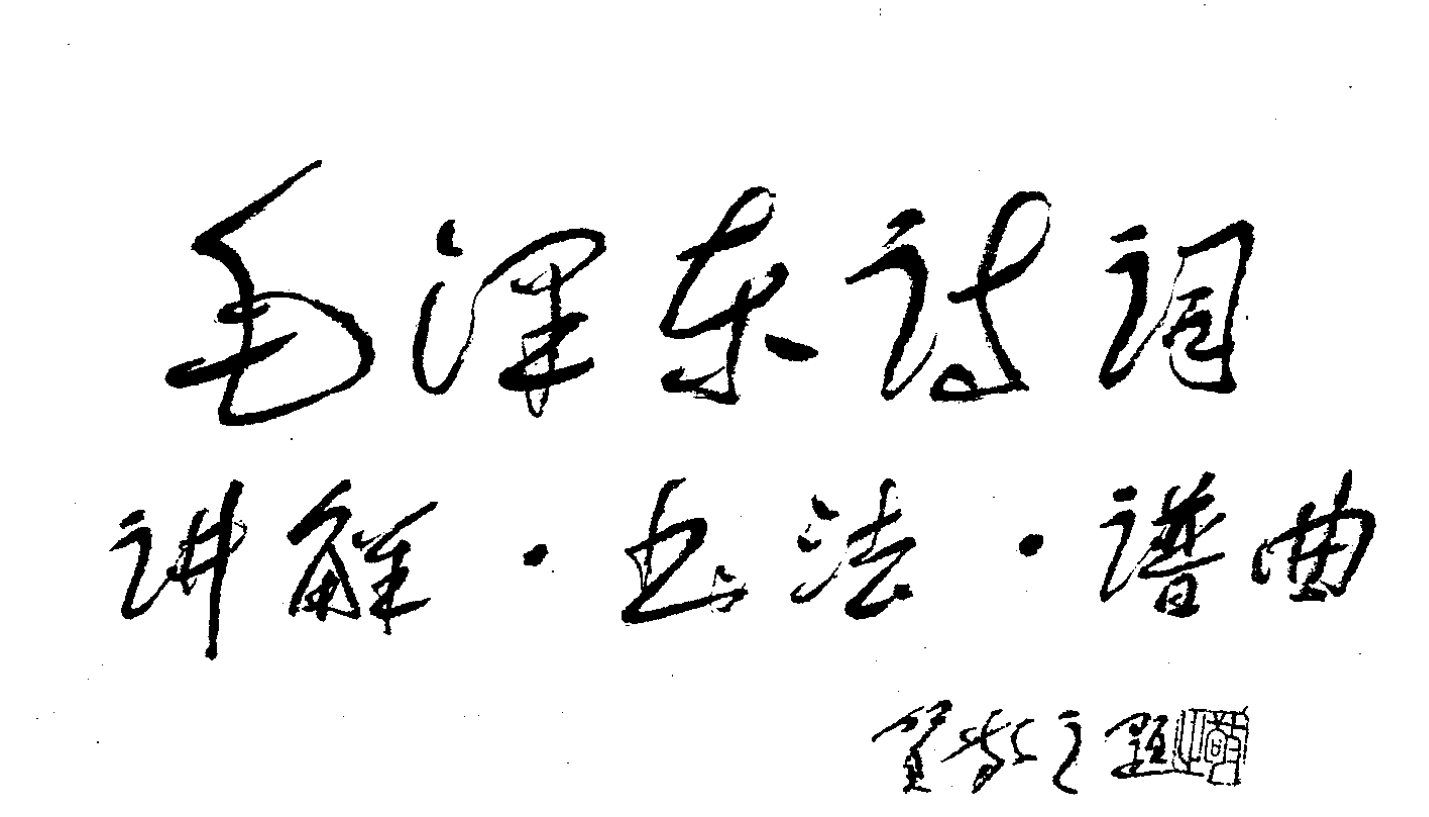 毛泽东诗词
讲解·书法·谱曲
贺敬之题